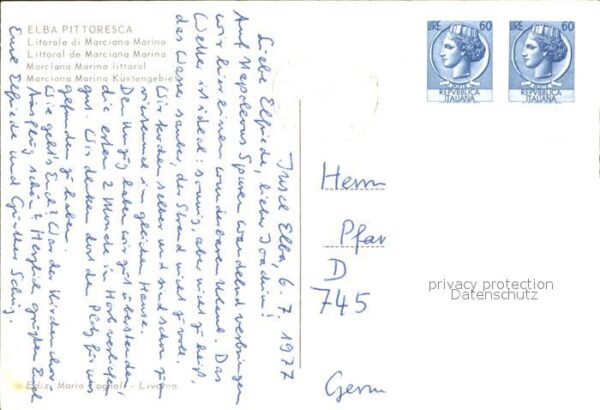 ELBA PITTORESCA
Litorale di Marciana Marina
Littoral de Marciana Marina
Marciana Marina littoral
Marciana Marina Küstengebiet
LIRE 60
REPVBBLICA
ITALIANA
LIRE 60
REPVBBLICA
ITALIANA
Insel Elba, 6.7.1977
Liebe Elfriede, lieber Joachim!
Auf Napoleons Spuren wandelnd verbringen
wir hier einen wunderbaren Urlaub. Das
Wetter ist ideal: sonnig, aber nicht zu heiß,
das Wasser sauber, der Strand nicht zu voll.
Wir kochen selber und sind schon zum
viertenmal im gleichen Hause.
Den Umzug haben wir gut überstanden,
die ersten 2 Monate in Horb verliefen
gut. Wir denken dort den Platz für uns
gefunden zu haben.
Wie geht's Euch? War der Kirchenchor-
Ausflug schön? Herzlich grüßen Euch
Eure Elfriede und Günther
Herrn
Pfar
D
745
Germ
privacy protection
Datenschutz
Ediz. Mario - Livorno